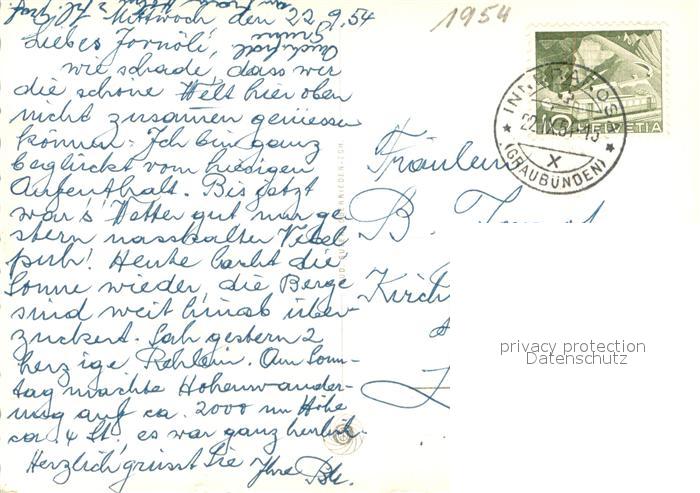 Mittwoch den 22.9.54
Liebes
wie schade, dass wir
die schöne Welt hier oben
nicht zusammen geniessen
können. Ich bin ganz
beglückt vom hiesigen
Aufenthalt. Bis jetzt
war's Wetter gut nur ge
stern nasskalter Nebel
puh! Heute lacht die
Sonne wieder, die Berge
sind weit hinab über-
zuckert. Sah gestern 2
herzige Rehlein. Am Sonn-
tag machte Höhenwander-
ung auf ca. 2000 m Höhe
ca. 4 St., es war ganz herrlich.
Herzlich grüsst Sie Ihre
1954
HELVETIA
(GRAUBÜNDEN)
X
Fräulein
B.
Kirch
privacy protection
Datenschutz